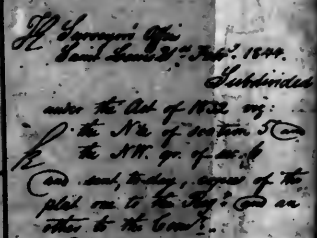 Surveyor's Office
Saint Louis 21st Feby. 1844.
Subdivided
under the Act of 1832 viz:
the N½ of section 5 and
the NW. qr. of sec. 6
and sent, to day, copies of the
plat one to the Regr. and an
other to the Comr.